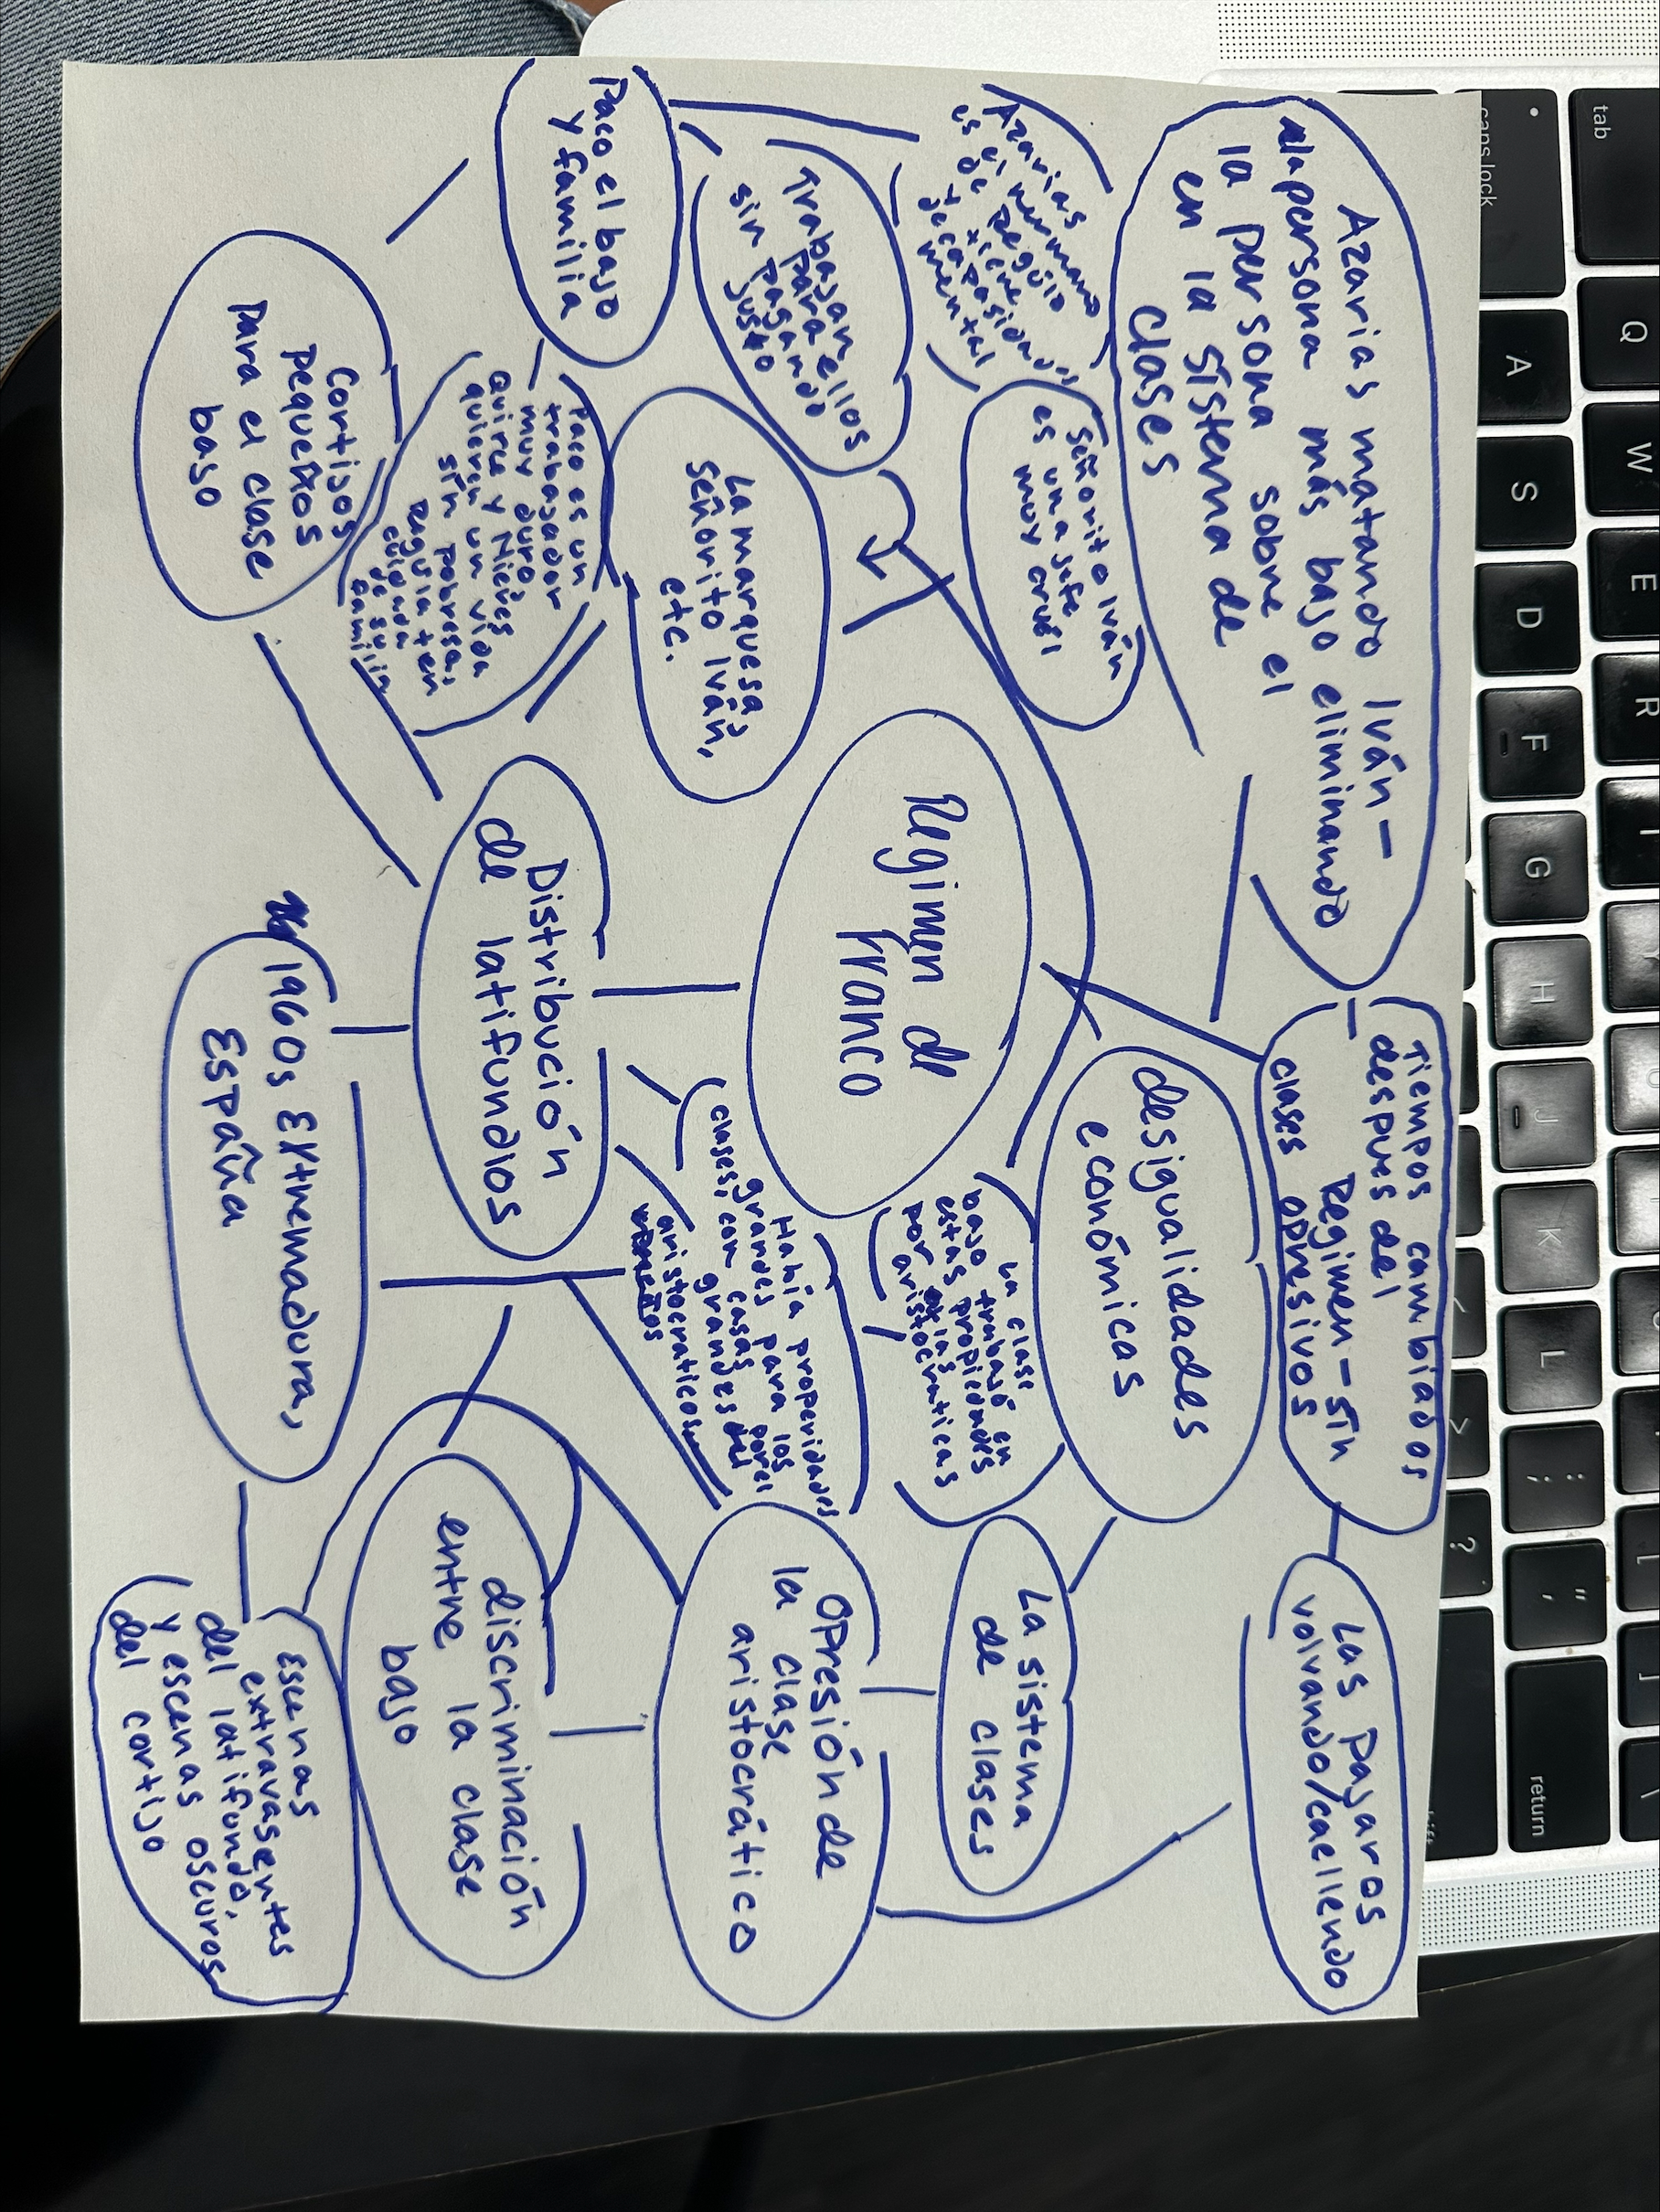 Azarias matando Iván –
la persona más bajo eliminando
la persona sobre el
en la sistema de
clases
Tiempos cambiados
– despues del
Regimen – sin
clases opresivos
Las pajaros
volvando/caellendo
Azarias
es el hermano
de Regula
tiene
decapasidad
mental
Señorito Iván
es una jefe
muy cruel
desigualidades
económicas
La sistema
de clases
Trabajan
para ellos
sin pagando
justo
Regimen de
Franco
La clase
bajo trabajó en
estas propiedades
por las
aristocraticas
Opresión de
la clase
aristocrático
Paco el bajo
y familia
La marquesa,
Señorito Iván,
etc.
Había properidades
grandes para los
clases, con casas
grandes
aristocraticos
Paco es un
trabajador
muy duro,
Quirce y Nieves
quieren un vida
sin pobressa,
Regula ten
cuidada
de su
familia
Distribución
de latifundios
discriminación
entre la clase
bajo
Cortijos
pequeños
para el clase
baso
1960s Extremadura,
España
Escenas
extravasentes
del latifundo,
y escenas oscuros
del cortijo
tab
caps lock
Q
W
E
R
A
S
D
F
G
H
J
K
L
;
:
"
'
>
?
return